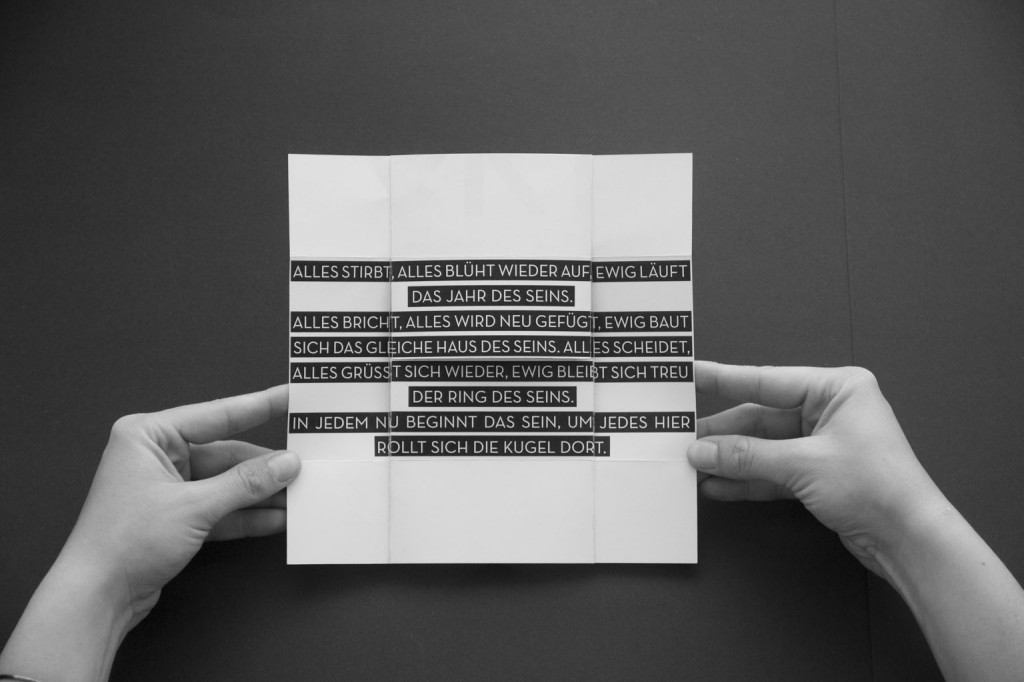 ALLES STIRBT, ALLES BLÜHT WIEDER AUF, EWIG LÄUFT
DAS JAHR DES SEINS.
ALLES BRICHT, ALLES WIRD NEU GEFÜGT, EWIG BAUT
SICH DAS GLEICHE HAUS DES SEINS. ALLES SCHEIDET,
ALLES GRÜSST SICH WIEDER, EWIG BLEIBT SICH TREU
DER RING DES SEINS.
IN JEDEM NU BEGINNT DAS SEIN, UM JEDES HIER
ROLLT SICH DIE KUGEL DORT.